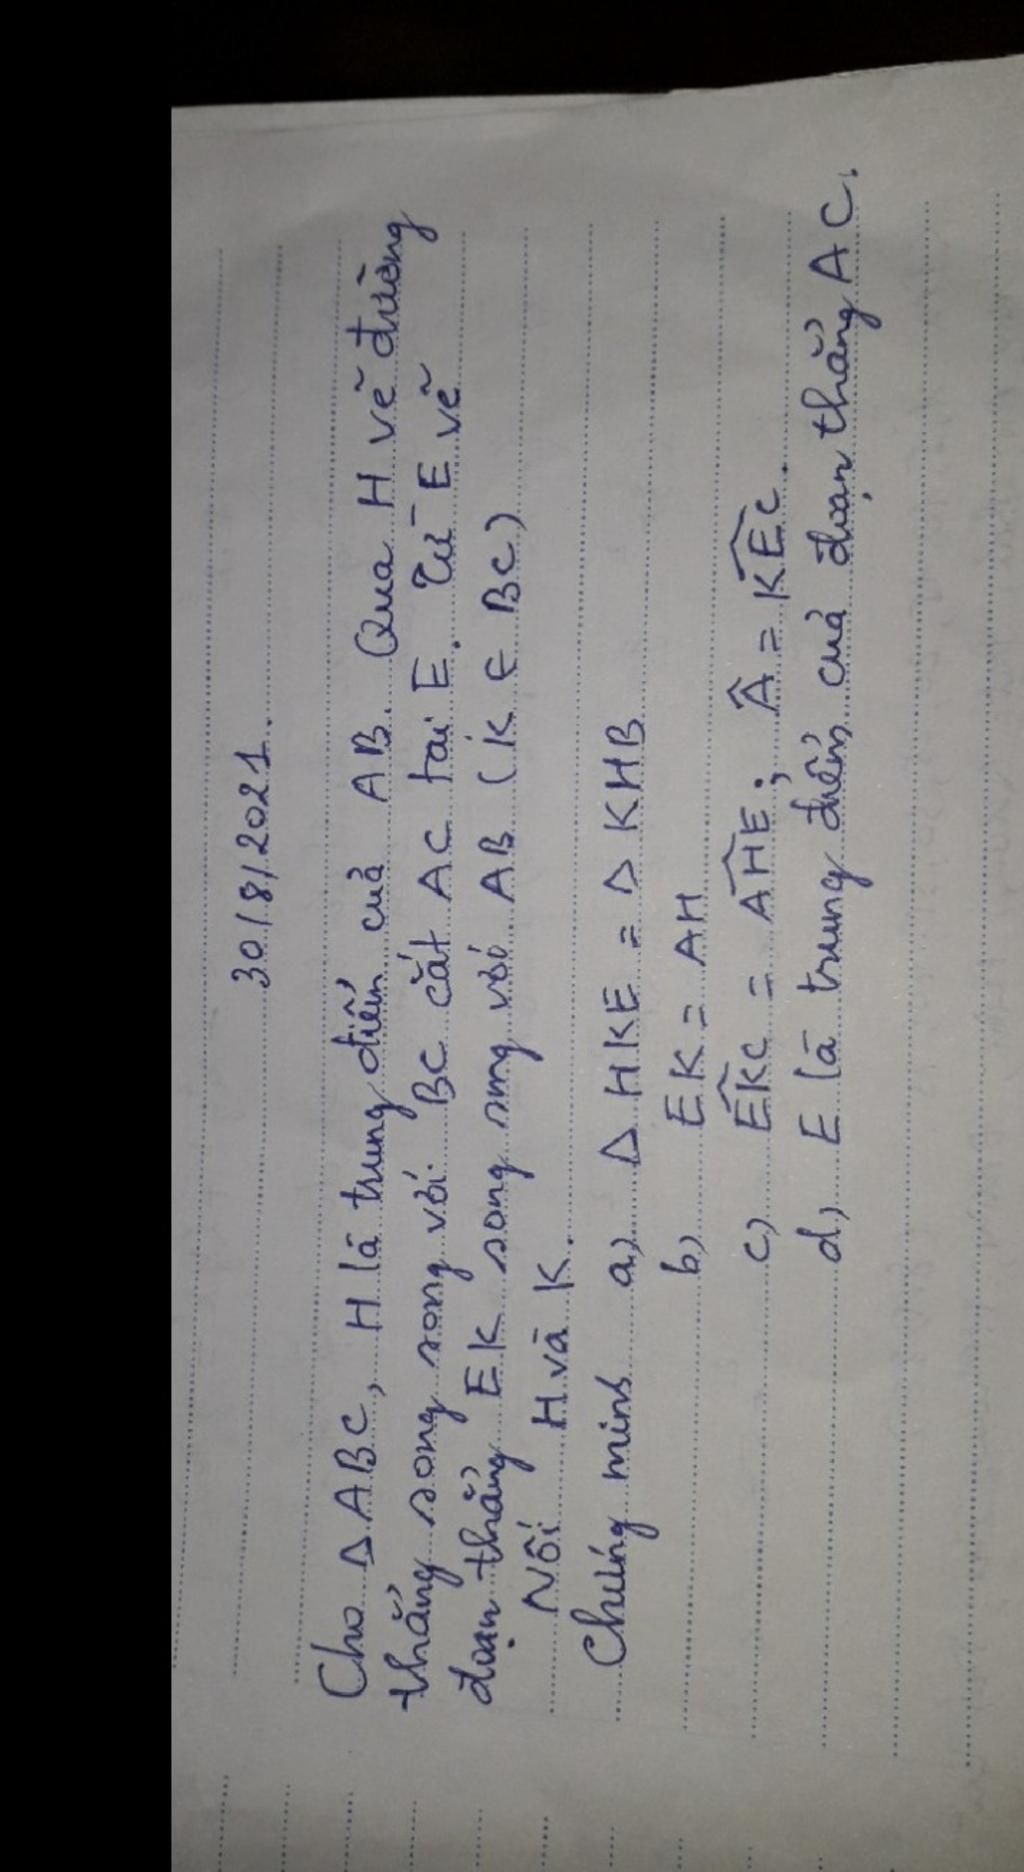 30/8/2021.
Cho Δ ABC, H là trung điểm của AB. Qua H vẽ đường
thẳng song song với BC cắt AC tại E. Từ E vẽ
đoạn thẳng EK song song với AB (K ∈ BC)
Nối H và K.
Chứng minh a, Δ HKE = Δ KHB
b, EK = AH
c, \widehat{EKC} = \widehat{AHE} ; \widehat{A} = \widehat{KEC}.
d, E là trung điểm của đoạn thẳng AC.